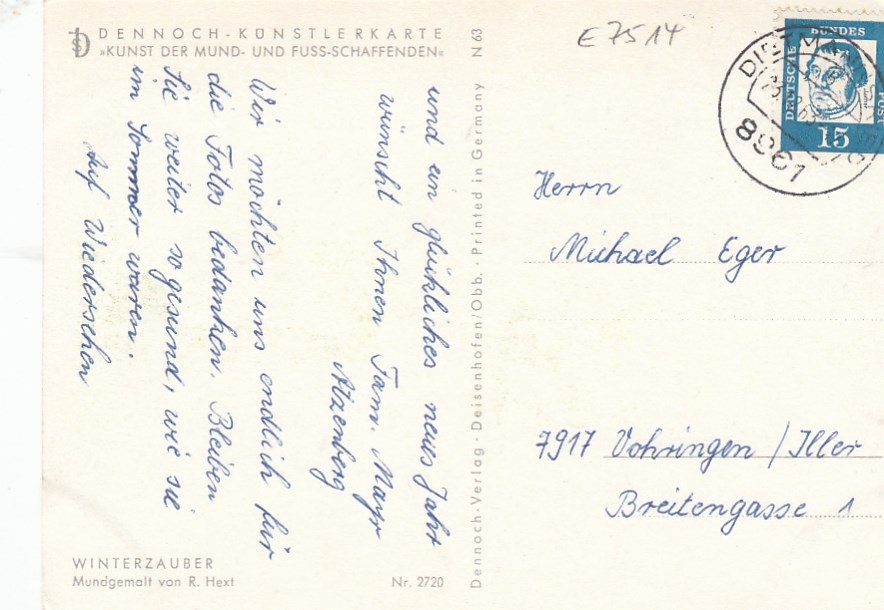 DENNOCH-KÜNSTLERKARTE
»KUNST DER MUND- UND FUSS-SCHAFFENDEN«
N 63
E 7514
DEUTSCHE
BUNDES
POST
15
8961
und ein glückliches neues Jahr
wünscht Ihnen Fam. Mayr
Atzenberg
Wir möchten uns endlich für
die Fotos bedanken. Bleiben
Sie weiter so gesund, wie sie
im Sommer waren.
Auf Wiedersehen
Dennoch-Verlag · Deisenhofen/Obb. · Printed in Germany
Herrn
Michael Eger
7917 Vöhringen / Iller
Breitengasse 1
WINTERZAUBER
Mundgemalt von R. Hext
Nr. 2720